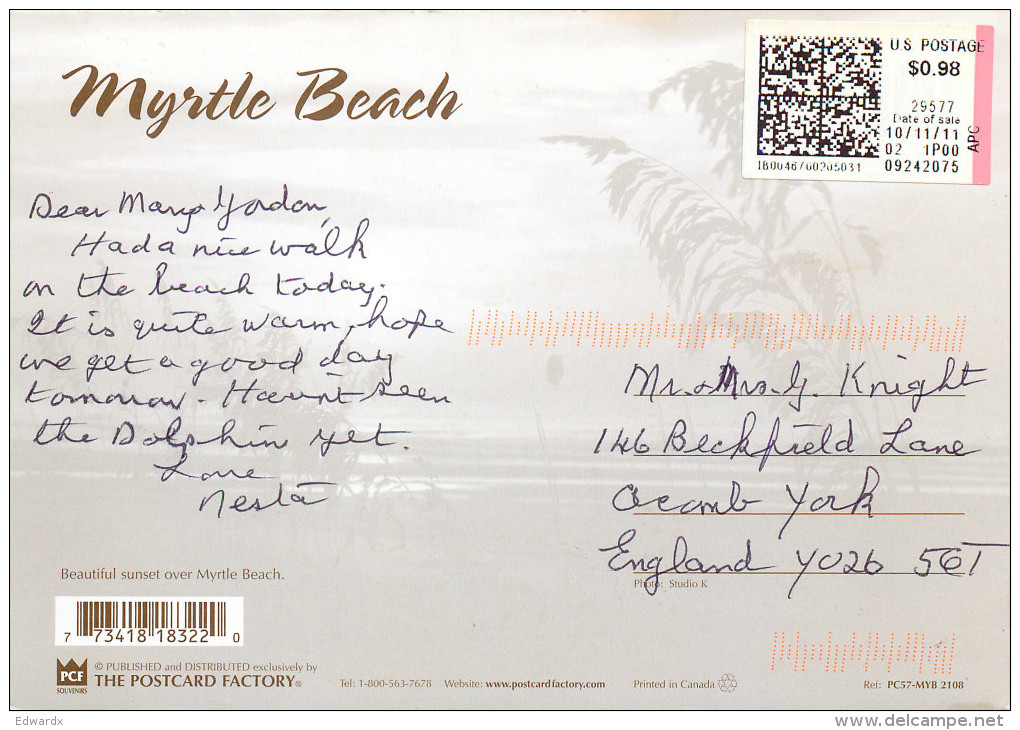 Myrtle Beach
U S POSTAGE
$0.98
29577
Date of sale
10/11/11
02 1P00
09242075
APC
Dear Mary & Gordon,
Had a nice walk
on the beach today.
It is quite warm, hope
we get a good day
tomorrow. Havn't seen
the Dolphin yet.
Love
Nesta
Mr. & Mrs. G. Knight
146 Beckfield Lane
Acomb York
England YO26 5QT
Beautiful sunset over Myrtle Beach.
Photo: Studio K
7 73418 18322 0
PCF
SOUVENIRS
© PUBLISHED and DISTRIBUTED exclusively by
THE POSTCARD FACTORY®
Tel: 1-800-563-7678 Website: www.postcardfactory.com
Printed in Canada
Ref: PC57-MYB 2108
Edwardx
www.delcampe.net